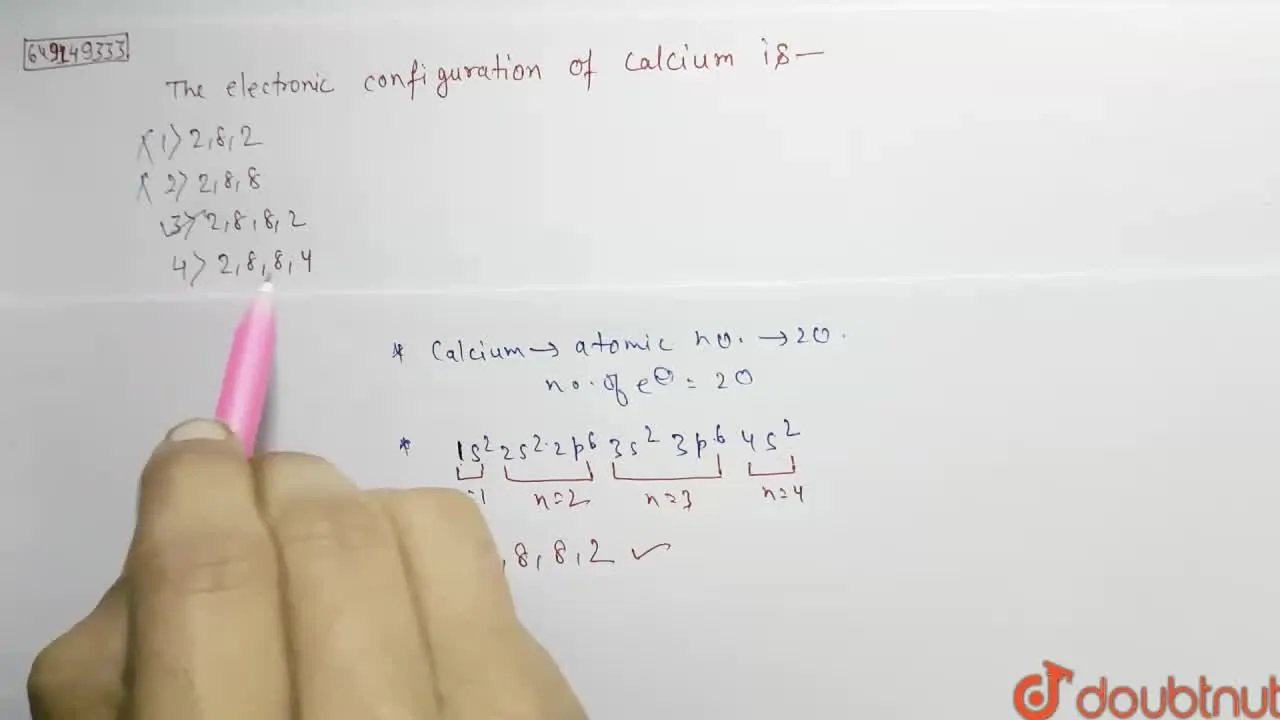 649149333
The electronic configuration of Calcium is—
(1) 2,8,2
(2) 2,8,8
3) 2,8,8,2
4) 2,8,8,4
* Calcium → atomic no. → 20.
no. of e⊖ = 20
* 1s² 2s² 2p⁶ 3s² 3p⁶ 4s²
=1 n=2 n=3 n=4
,8,8,2 ✓
doubtnut